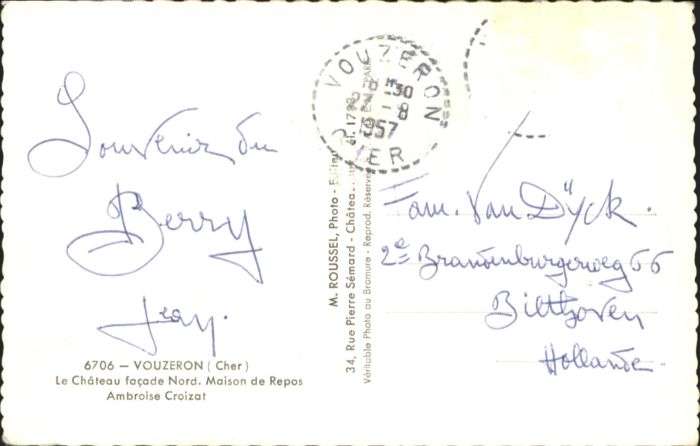 Souvenir du
Berry
Jean.
6706 — VOUZERON (Cher)
Le Château façade Nord. Maison de Repos
Ambroise Croizat
M. ROUSSEL, Photo - 
34, Rue Pierre Sémard - Châtea
Véritable Photo au Bromure - Reprod. Réservée
VOUZERON
30
8
1957
CHER
Fam. Van Dÿck.
2e Brandenburgerweg 66
Bilthoven
Hollande